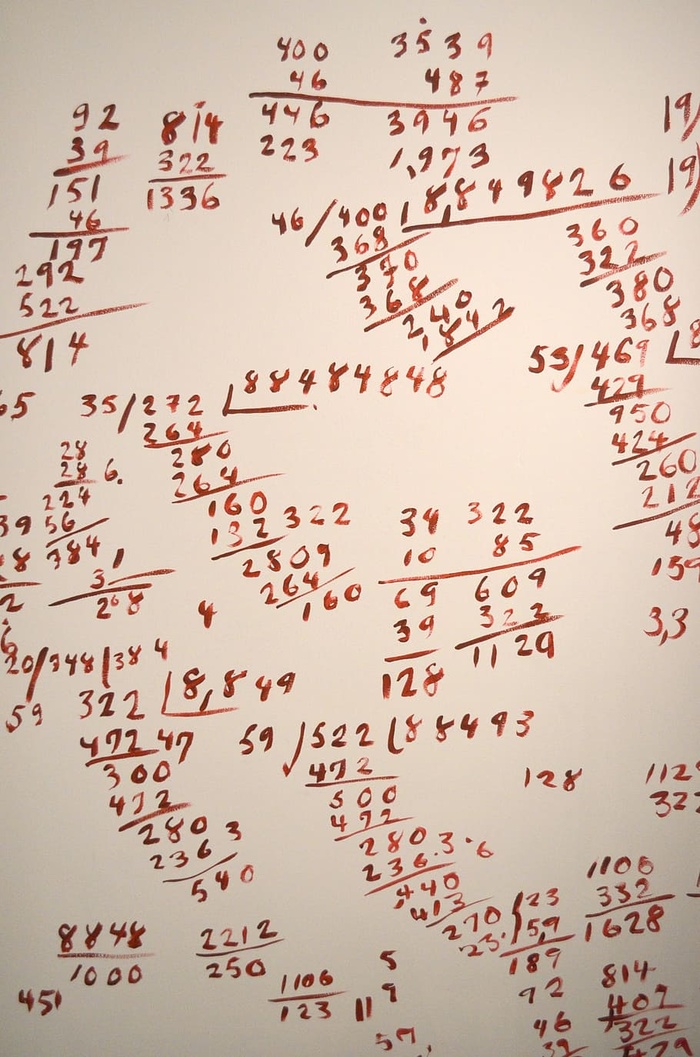 400 3539
46 487
446 3946
223 1,973
92
39
151
46
197
292
522
814
814
322
1336
19/
19/
46/400 18,849826
368
320
368
240
1842
360
322
380
368
53/469
429
950
424
260
212
48
159
3,3
65
35/272 88484848
264
280
264
160
132 322
2809
264
160
28
28 6.
224
56
384
1
31
268
39
8
2
4
34 322
10 85
69 609
39 322
128 1129
20/348/384
59
322 8,849
472 47
300
472
280 3
2363
540
59/522 88493
472
500
472
280 3.6
236
440
413
270
128
112
32
23. 123
59
189
92
46
39
1106
332
1628
814
407
322
429
8848
1000
2212
250
1106
123
5
119
451
57